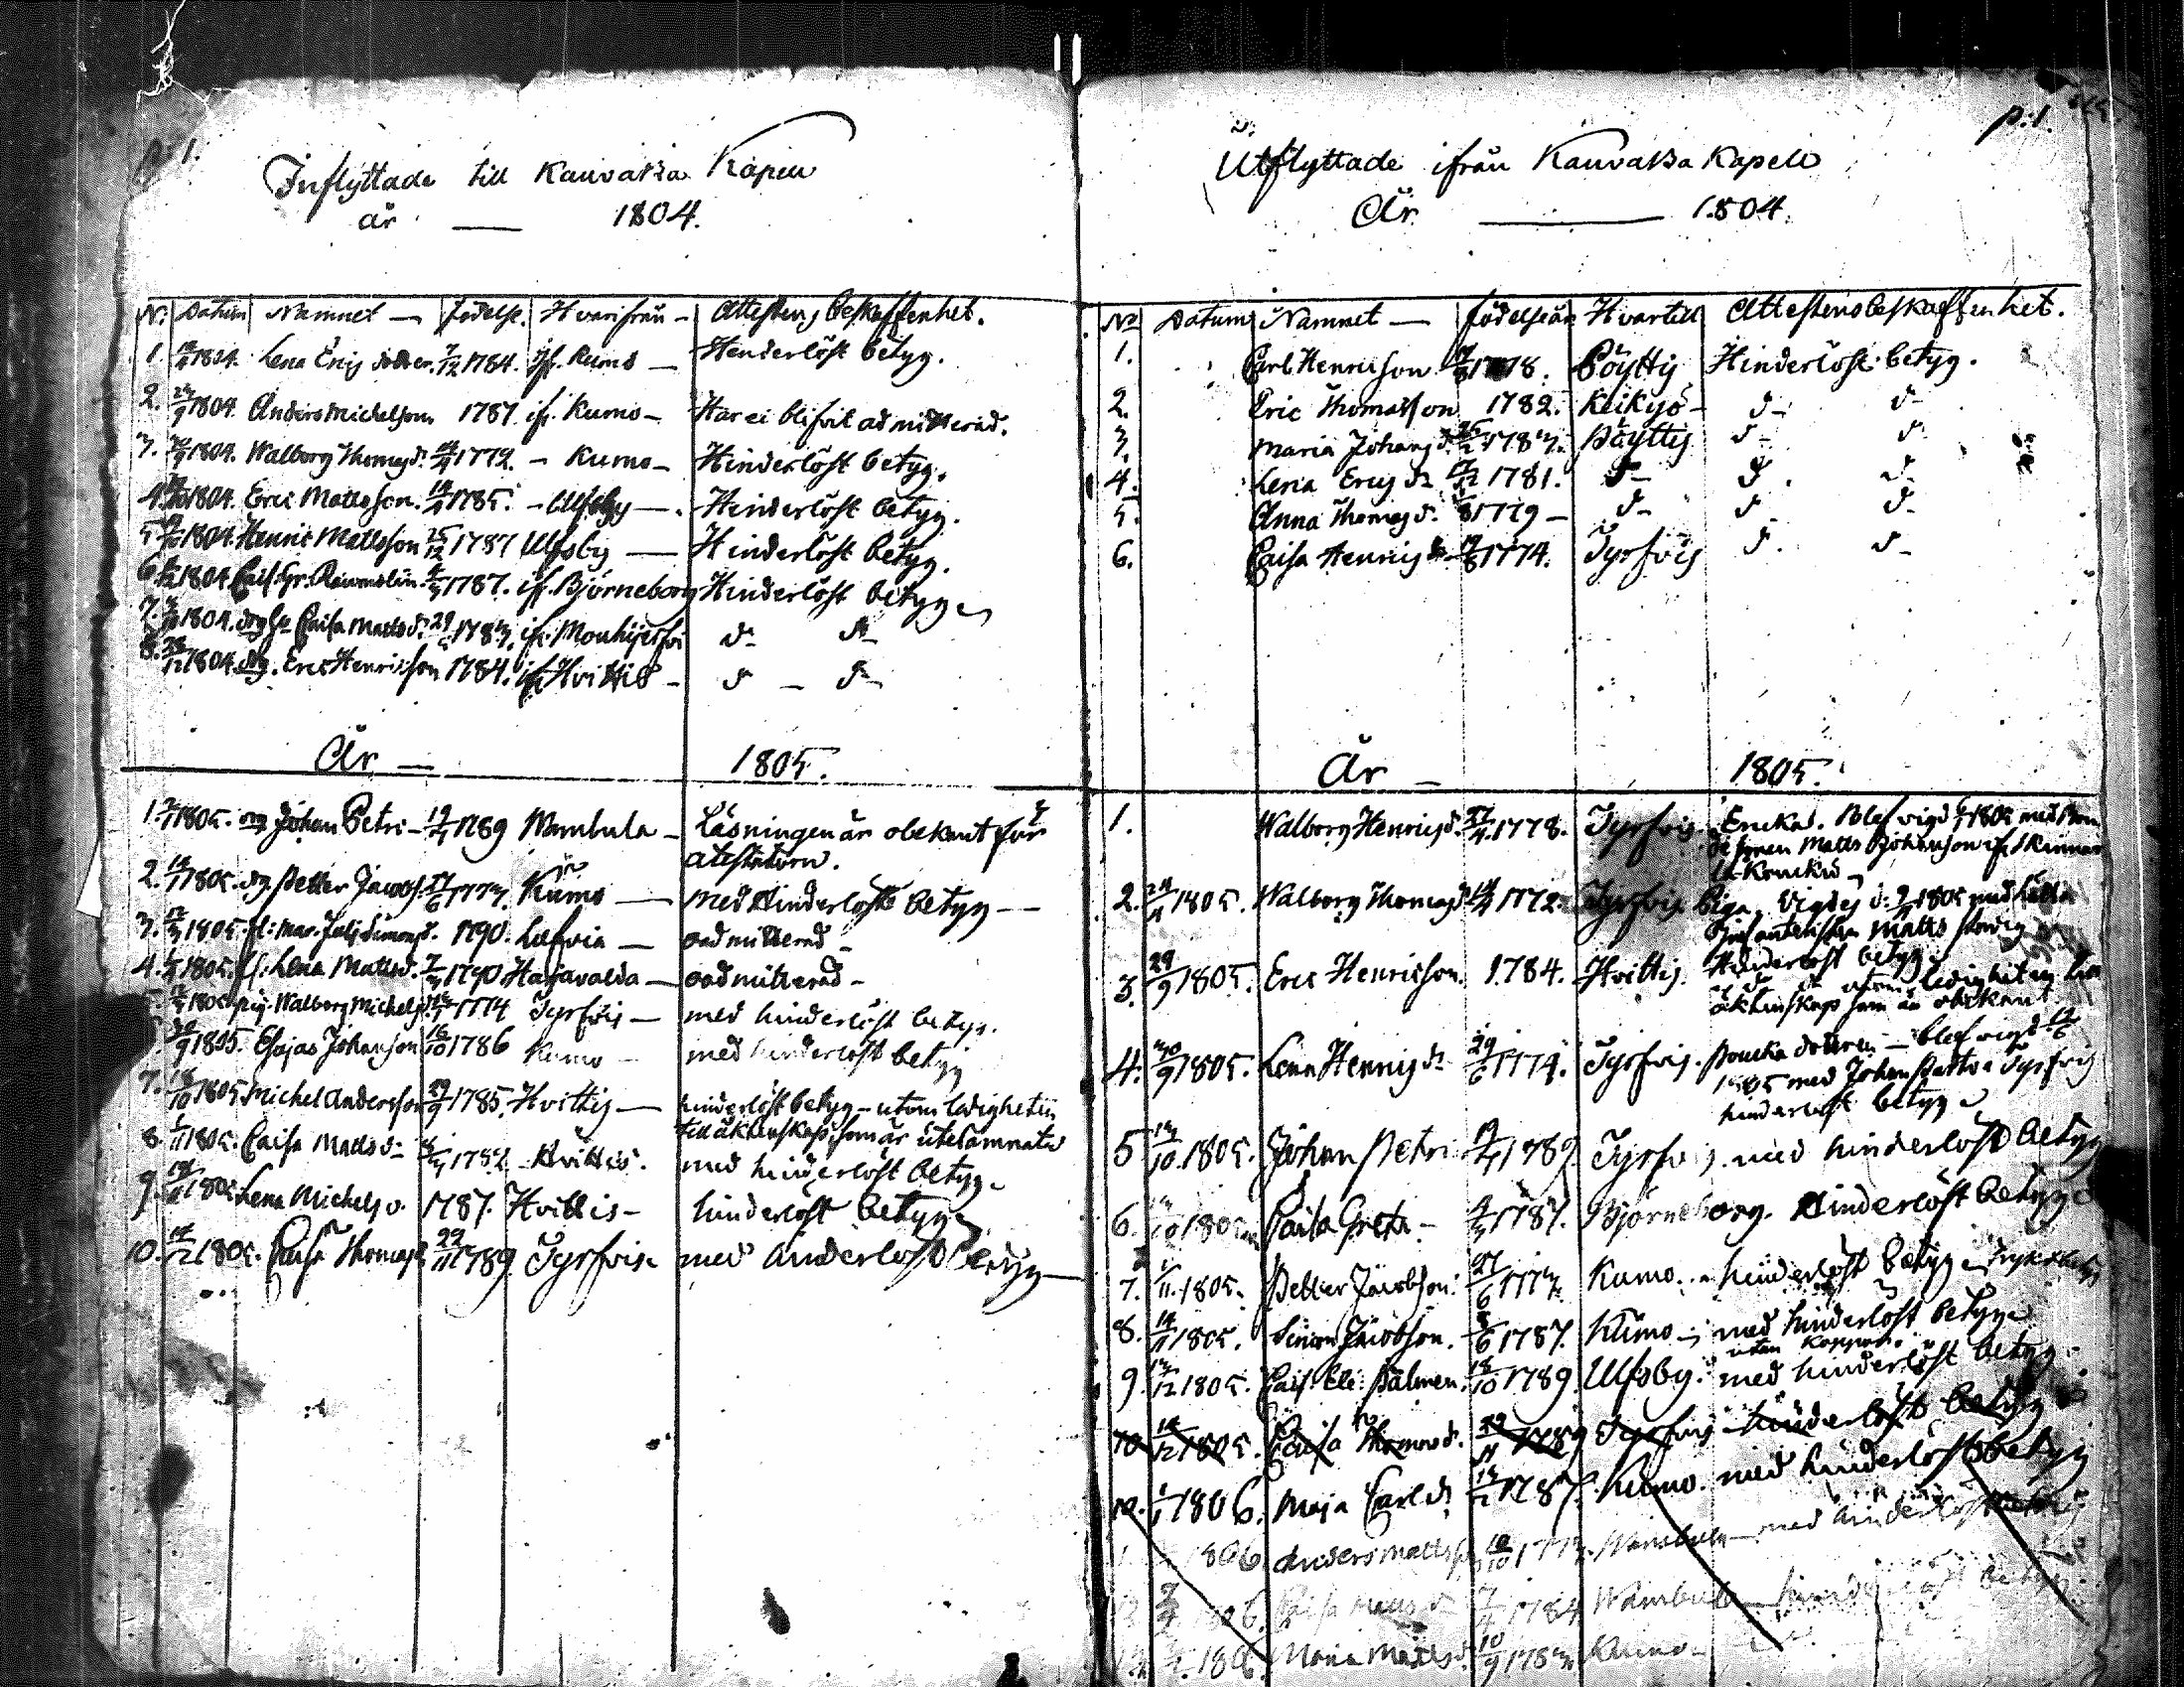 p. 1.
Inflyttade till Kauvatsa Kapell
år — 1804.
N: Datum Namnet — födelse. Hvarifrån — Attestens beskaffenhet.
1. 1804. Lena Ericsdotter. 7/12 1784. if. Kumo — Henderlöst betyg.
2. /9 1804. Anders Michelsson 1787. if. Kumo — Har ei blifvit admitterad.
3. 1804. Walborg Thomasd: 14/4 1772. — Kumo — Hinderlöst betyg.
4. 1804. Eric Mattsson. 1785. — Ulfsby —. Hinderlöst betyg.
5. 1804. Henric Mattsson 25/12 1787 Ulfsby — Hinderlöst betyg.
6. /12 1804. Cais. Gr. 4/3 1787. if. Björneborg Hinderlöst betyg
7. 1804. Caisa Mattsd: 29 1783. if. Mouhijerfvi d:o d:o
8. /12 1804. dr. Eric Henricsson 1784. if. Hvittis — d:o — d:o
År — 1805.
1. 1805. dr Johan Petri — 19/4 1789 Wambula — Läsningen är obekant för
atestatorn.
2. 1805. dr Petter Jacobs. 27/6 1773. Kumo — med Hinderlöst betyg —
3. 1805. fl: Mar. Juli Simonsd. 1790. Lefvia — oadmitterad —
4. 1805. fl. Lena Mattsd. 7/3 1790 Harjavalda — oadmitterad —
5. 1805 pig. Walborg Michelsd. 1774 Tyrfvis — med hinderlöst betyg.
/9 1805. Esajas Johansson 16/10 1786 Kumo — med hinderlöst betyg
7. 18/10 1805 Michel Andersson 29/9 1785. Hvittis — hinderlöst betyg — utom ledigheten
till äktenskap, som är utelämnatd
8. /11 1805. Caisa Mattsd:r 1782 — Hvittis. med hinderlöst betyg.
9. /11 1805. Lena Michelsd. 1787. Hvittis — hinderlöst betyg
10. 14/12 1805. Caisa Thomasd: 22/11 1789. Tyrfvis. med hinderlöst betyg —
p: 1.
Utflyttade ifrån Kauvatsa Kapell
År — 1804.
No Datum Namnet — födelseår Hvartill Attestens beskaffenhet.
1. Carl Henricsson. 1778. Pöyttis Hinderlöst betyg.
2. Eric Thomasson 1782. Keikyö — d:o d:o
3. Maria Johansd: 1783. Pöyttis d:o d:o
4. Lena Ericsd:r 1781. d:o d. d:o
5. Anna Thomasd. 1779 — d:o d:o d:o
6. Caisa Henricsd:r 19/8 1774. Tyrfvis d. d:o
År — 1805.
1. Walborg Henricsd: 27/4 1778. Tyrfvis. Enckad. Blef vigd 1805 med Bon
de sonen Matts Johansson if. Kinnar
la Koucku —
2. /4 1805. Walborg Thomasd: 14/4 1772. Tyrfvis Piga. Vigdes 1805 med
Matts
Hinderlöst betyg
3. 29/9 1805. Eric Henricsson. 1784. Hvittis. utom ledigheten till
äktenskap som är obekant.
4. 30/9 1805. Lena Henricsd:r 29/6 1779. Tyrfvis. dottren — blef vigd
1805 med Johan i Tyrfvis
hinderlöst betyg
5 13/10 1805. Johan Petri 19/4 1789. Tyrfvis. med hinderlöst betyg
6. /10 1805. Caisa Greta — 4/3 1787. Björneborg. Hinderlöst betyg
7. 1/11 1805. Petter Jacobson. 27/6 1773. Kumo. — hinderlöst betyg
8. 14/11 1805. Simon Jacobson. 8/6 1787. Kumo — med hinderlöst betyg
utan koppor.
9. 13/12 1805. Cais. Ele: Palmen. 18/10 1789. Ulfsby. med hinderlöst betyg
10. 14/12 1805. Caisa Thomasd:r. 22/11 1789 Tyrfvis — hinderlöst betyg
10. 1/1 1806. Maja Carlsd: 1787. Kumo. med hinderlöst betyg
1806. Anders Mattss. 18/10 1773. Wambula — med hinderlöst betyg
1806. Caisa Mattsd. 7/4 1784 Wambula — hinderlöst betyg
180. Maria Mattsd: 10/9 1783. Kumo —